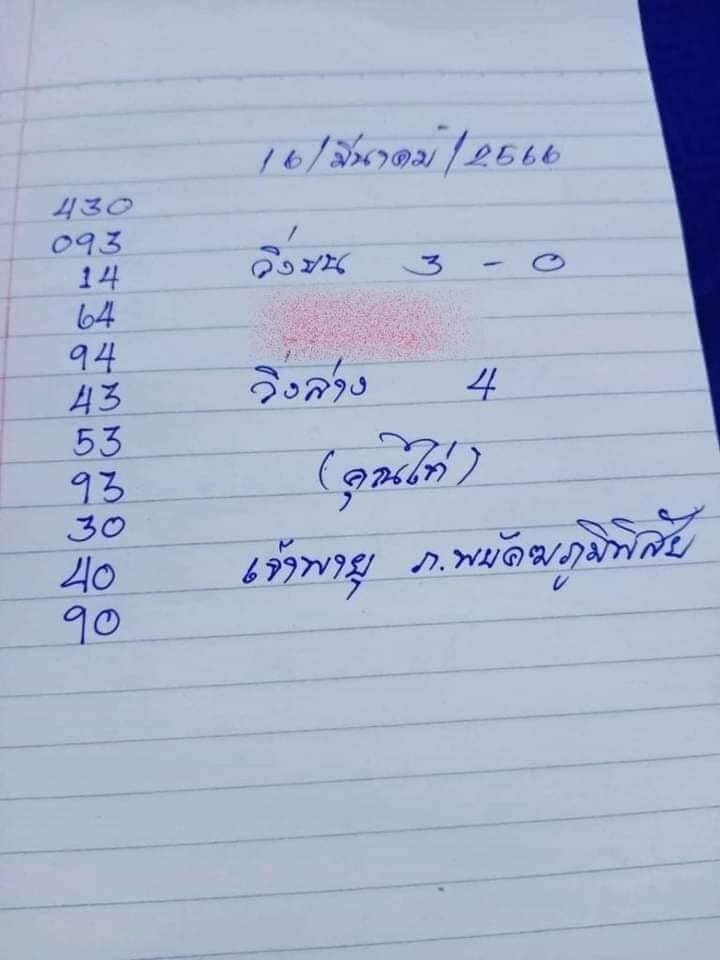 16/มีนาคม/2566
430
093
14
64
94
43
53
93
30
40
90
วิ่งบน 3 - 0
วิ่งล่าง 4
(คุณไก่)
เจ้าพายุ ภ.พยัคฆภูมิพิสัย